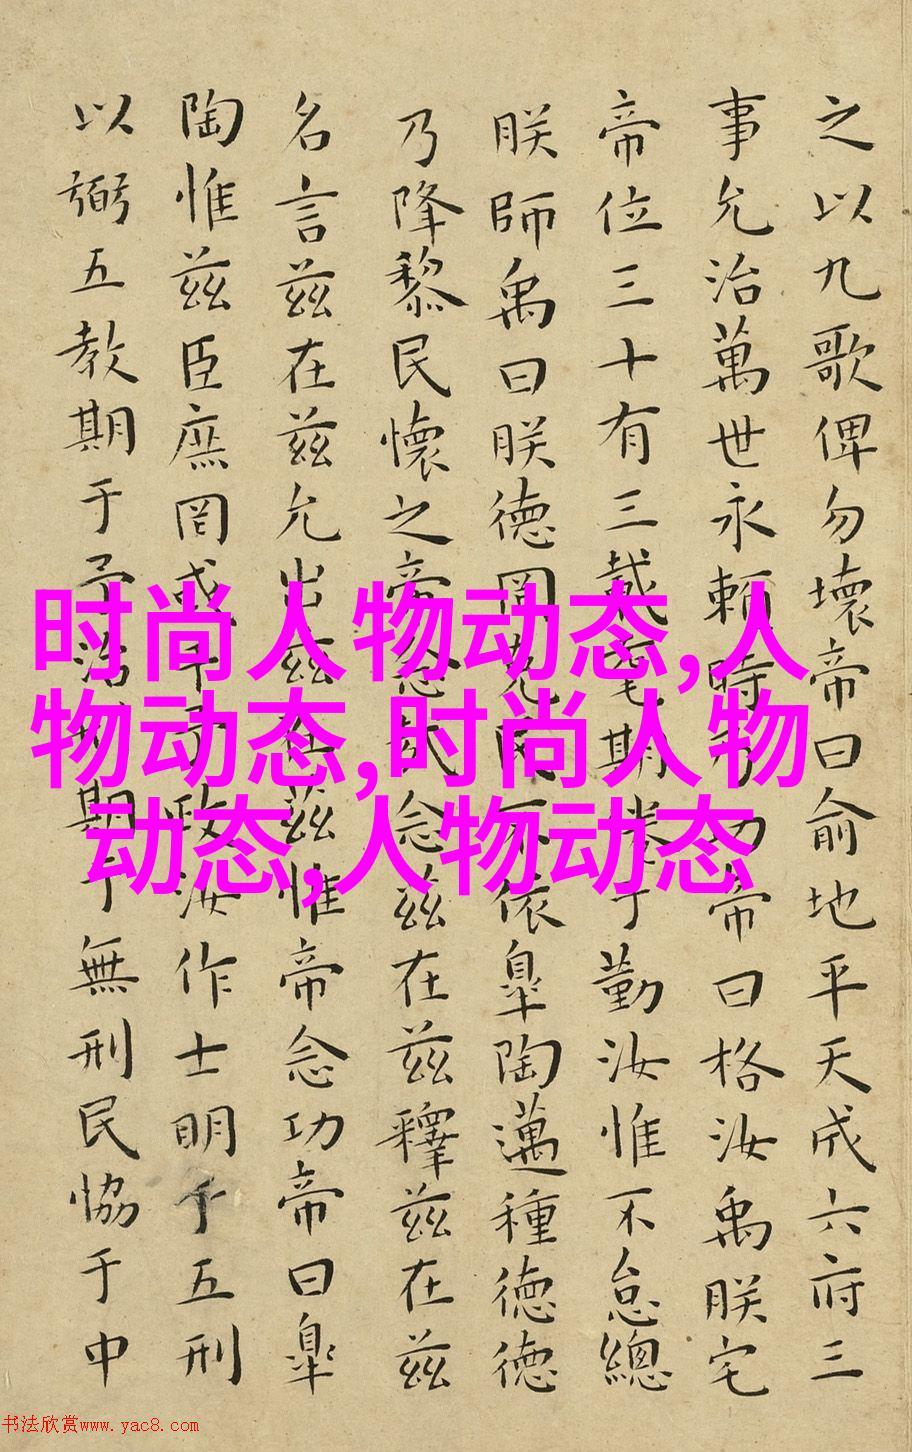 之以九歌俾勿壞帝曰俞地平天成六府三
事允治萬世永賴時乃功帝曰格汝禹朕宅
帝位三十有三載耄期倦于勤汝惟不怠總
朕師禹曰朕德罔克民不依皐陶邁種德德
乃降黎民懷之帝念哉念茲在茲釋茲在茲
名言茲在茲允出茲在茲惟帝念功帝曰皐
陶惟茲臣庶罔或干予政汝作士明于五刑
以弼五教期于予治刑期于無刑民協于中
时尚人物动态,人
物动态,时尚人物
动态,人物动态
书法欣赏www.yac8.com